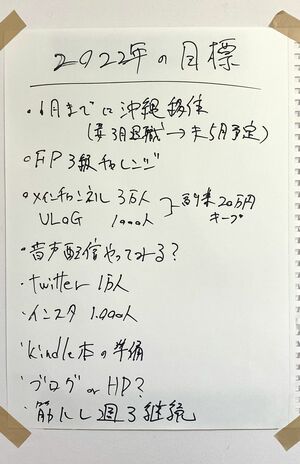 2022年の目標
・6月までに沖縄移住
(妻3月退職→夫5月予定)
・FP3級チャレンジ
・メインチャンネル 3万人
VLOG 1000人
副業20万円
キープ
・音声配信やってみる?
・twitter 1万人
・インスタ 1,000人
・kindle本の準備
・ブログ or HP?
・筋トレ週3継続